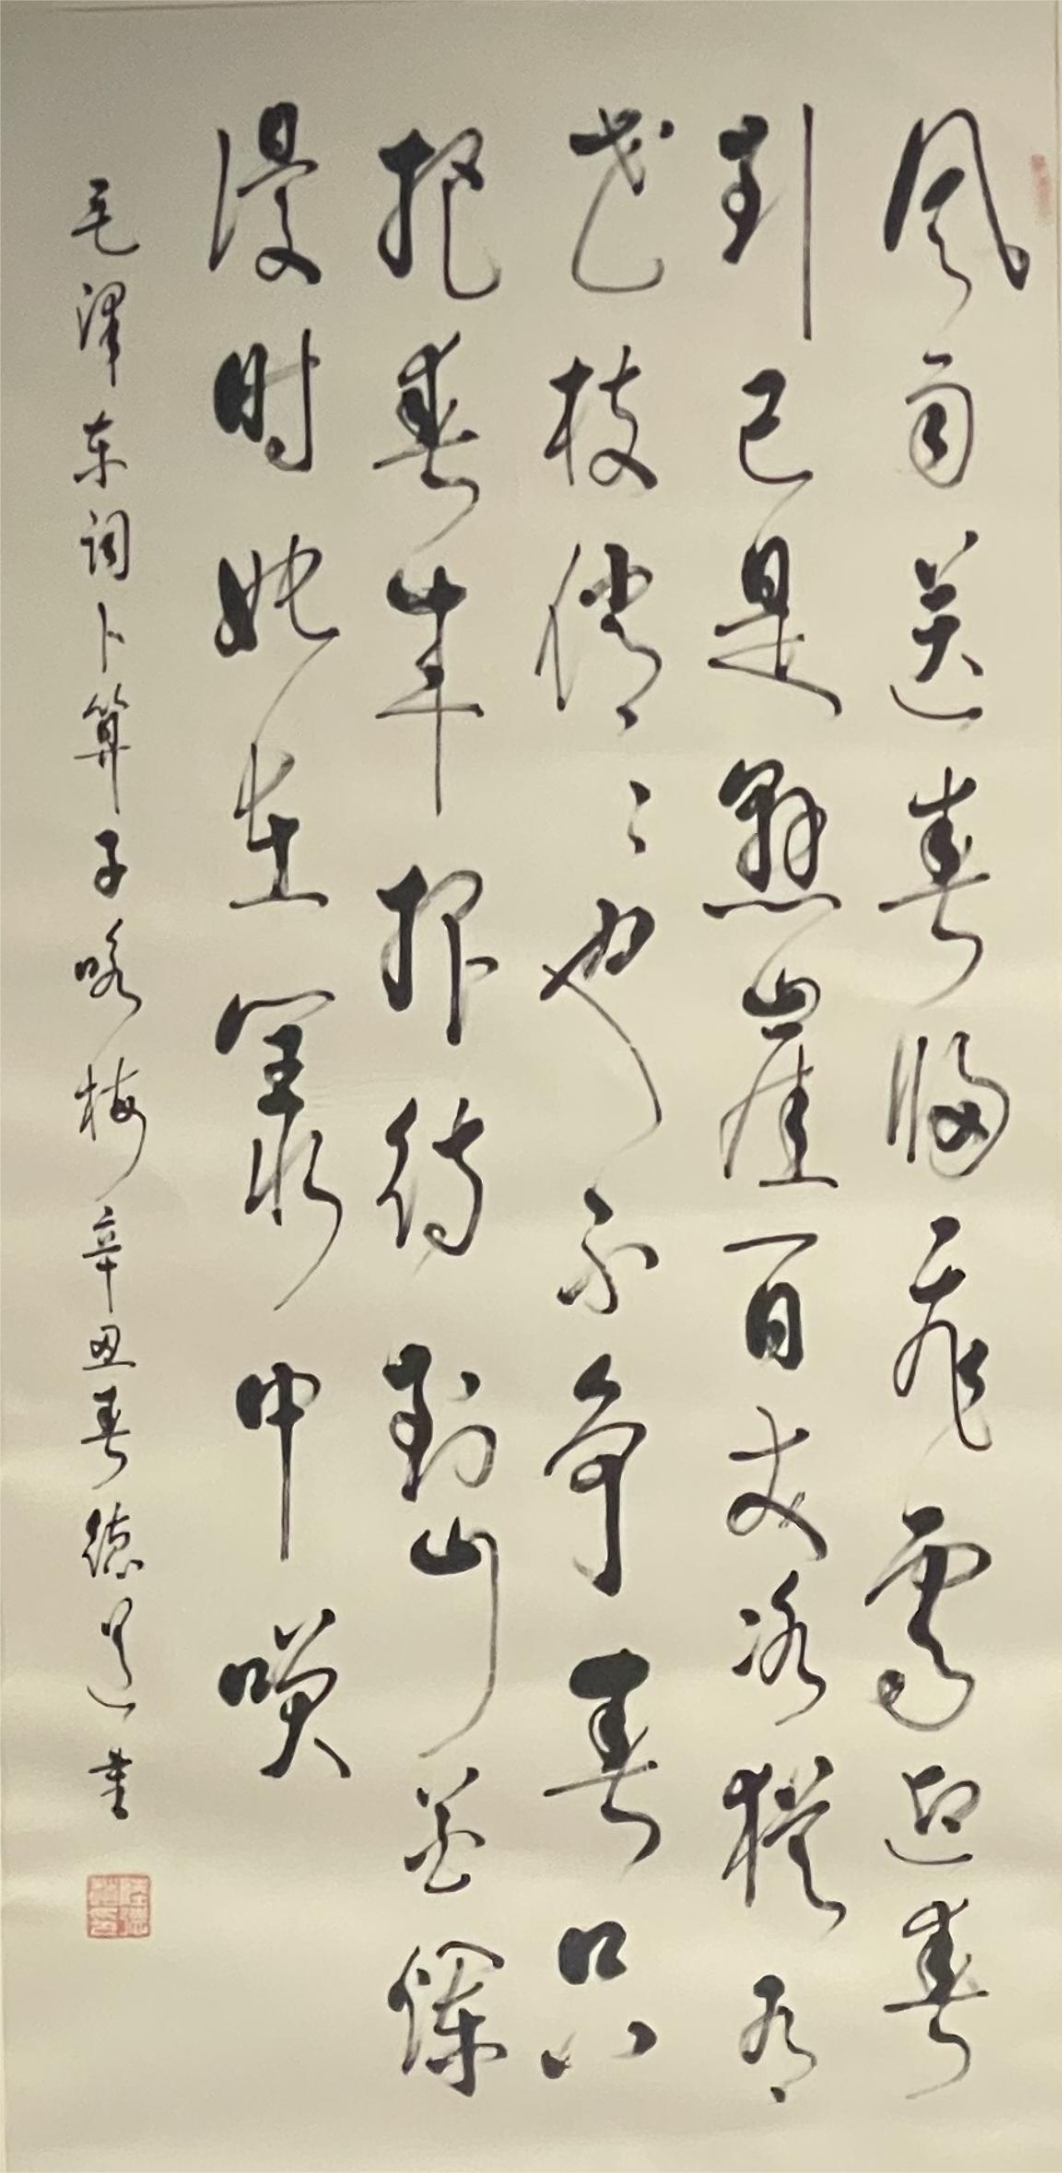 风雨送春归飞雪迎春
到已是懸崖百丈冰猶有
花枝俏俏也不争春只
把春来报待到山花烂
漫时她在叢中笑
毛泽东词卜算子咏梅辛丑春德道书